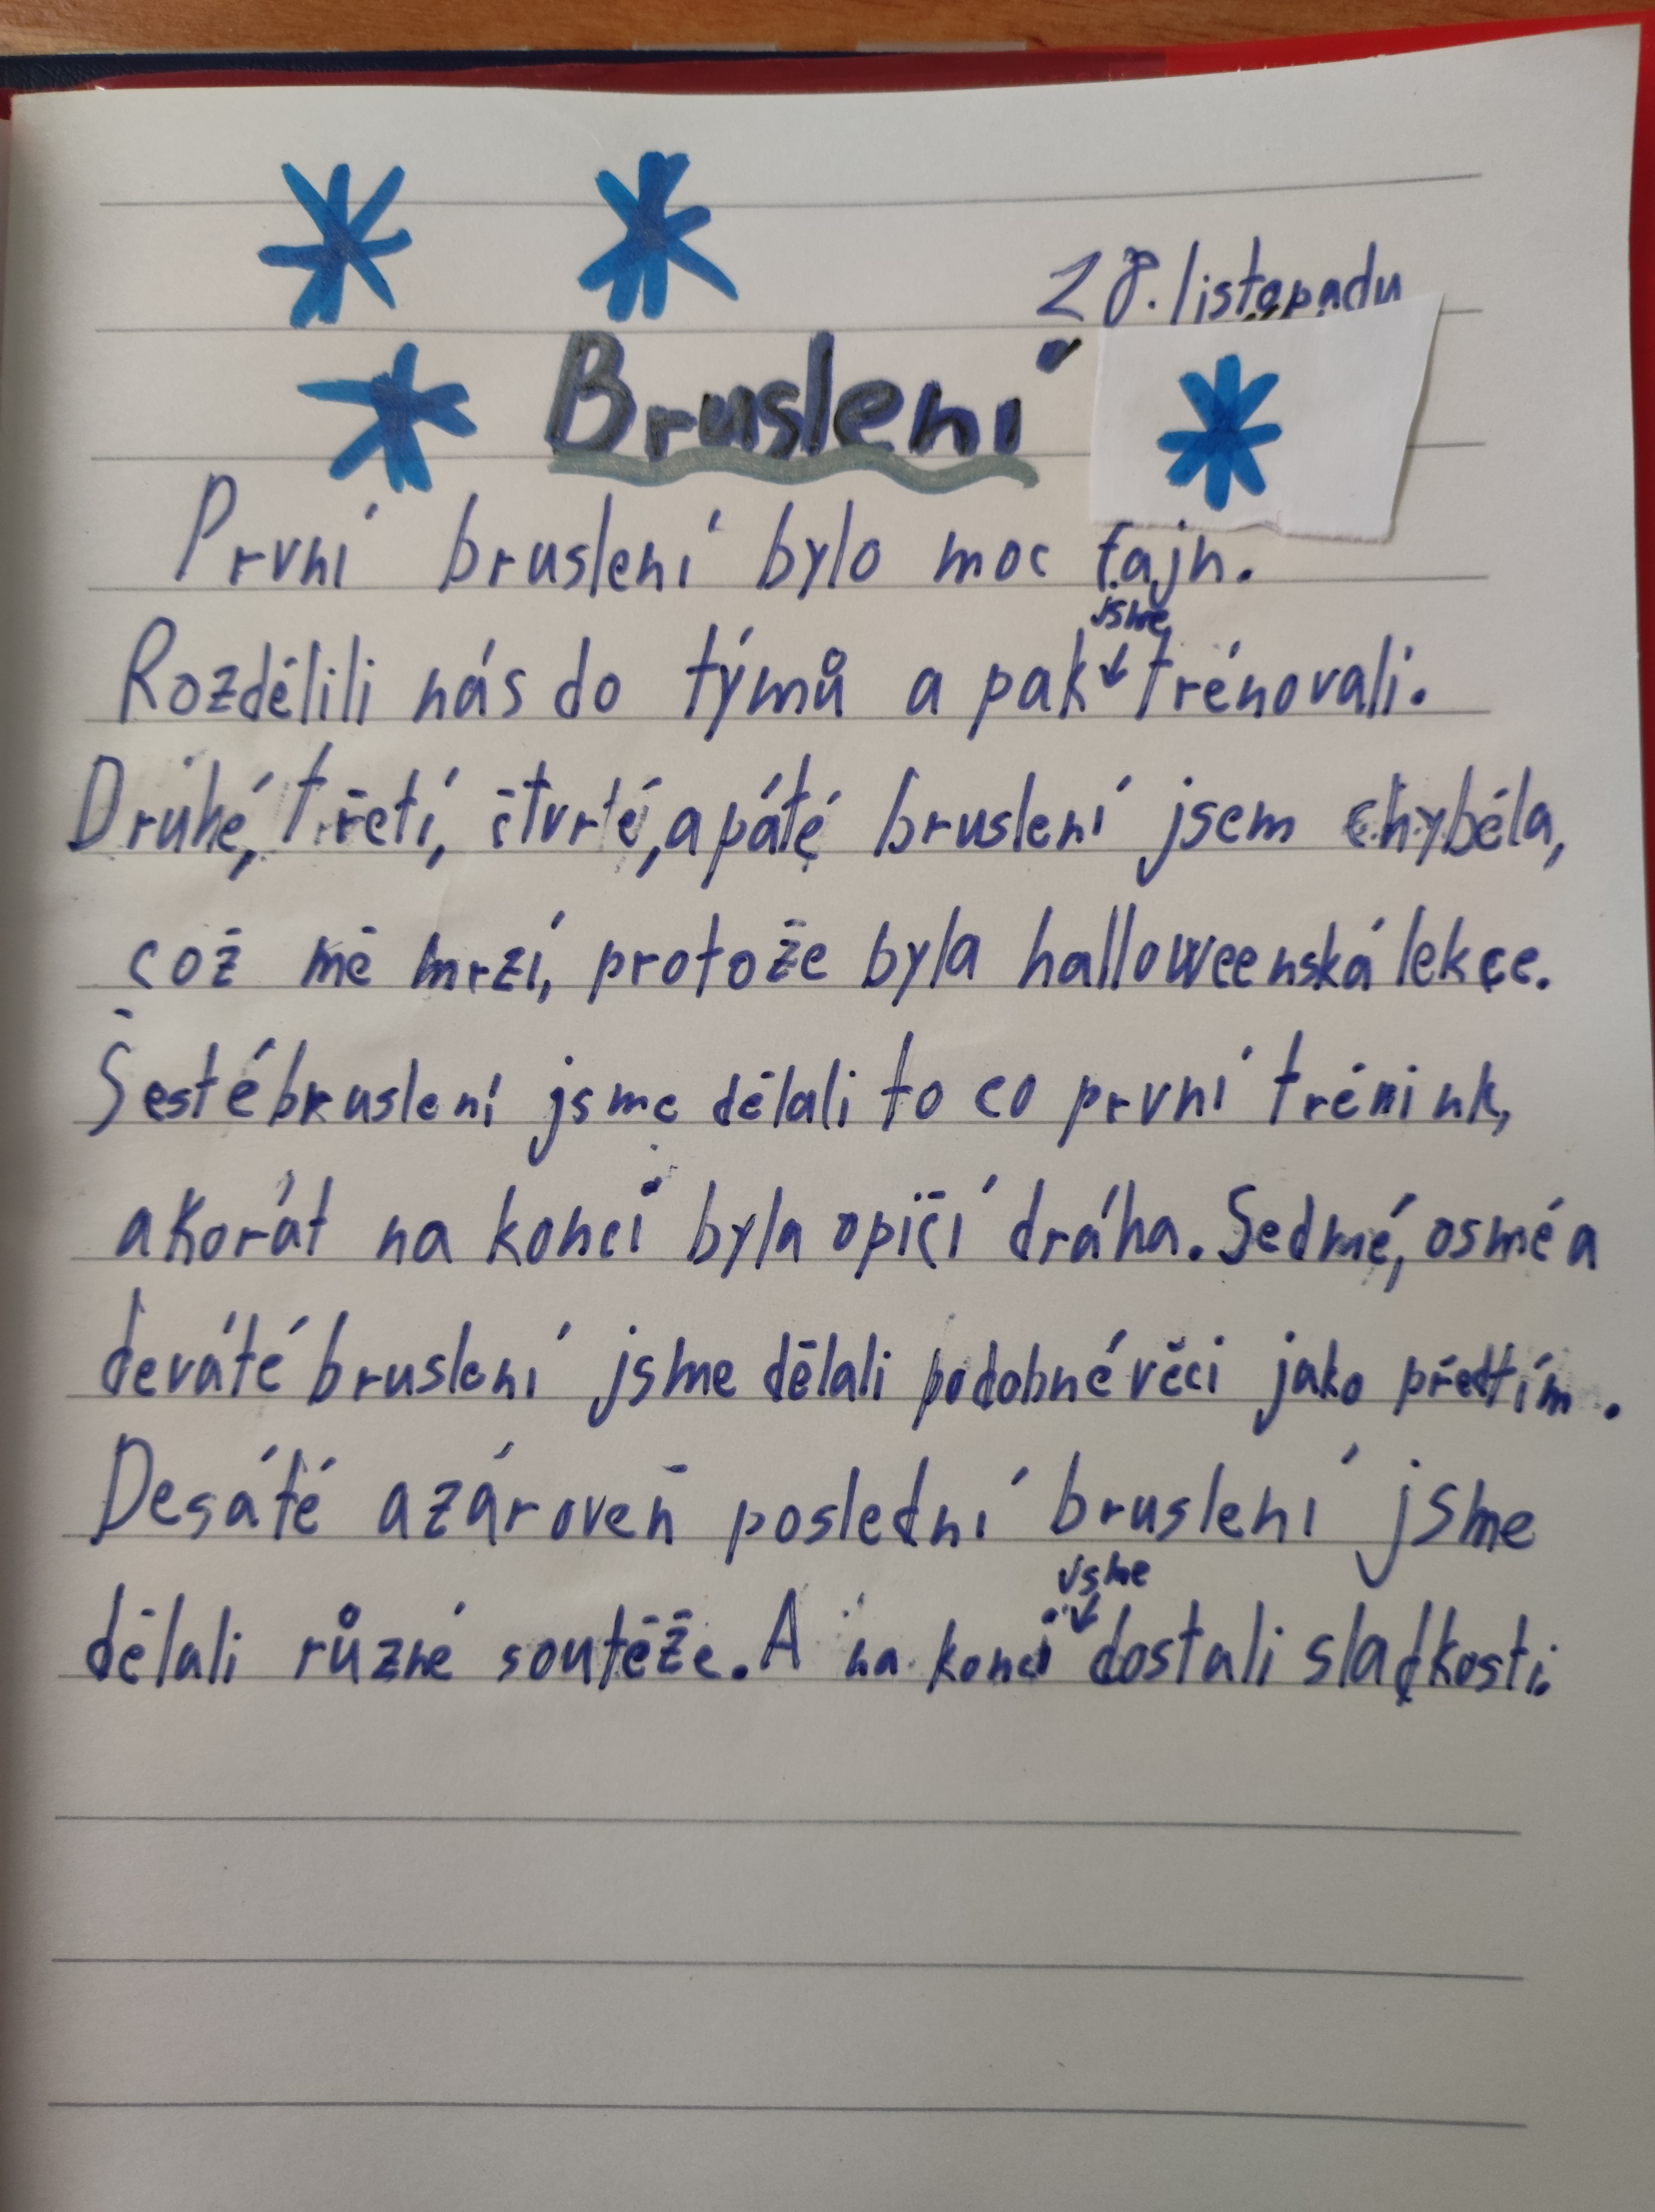 28. listopadu
Bruslení
První bruslení bylo moc fajn.
jsme
Rozdělili nás do týmů a pak trénovali.
Druhé, třetí, čtvrté, a páté bruslení jsem chyběla,
což mě mrzí, protože byla halloweenská lekce.
Šesté bruslení jsme dělali to co první trénink,
akorát na konci byla opičí dráha. Sedmé, osmé a
deváté bruslení jsme dělali podobné věci jako předtím.
Desáté a zároveň poslední bruslení jsme
jsme
dělali různé soutěže. A na konci dostali sladkosti.